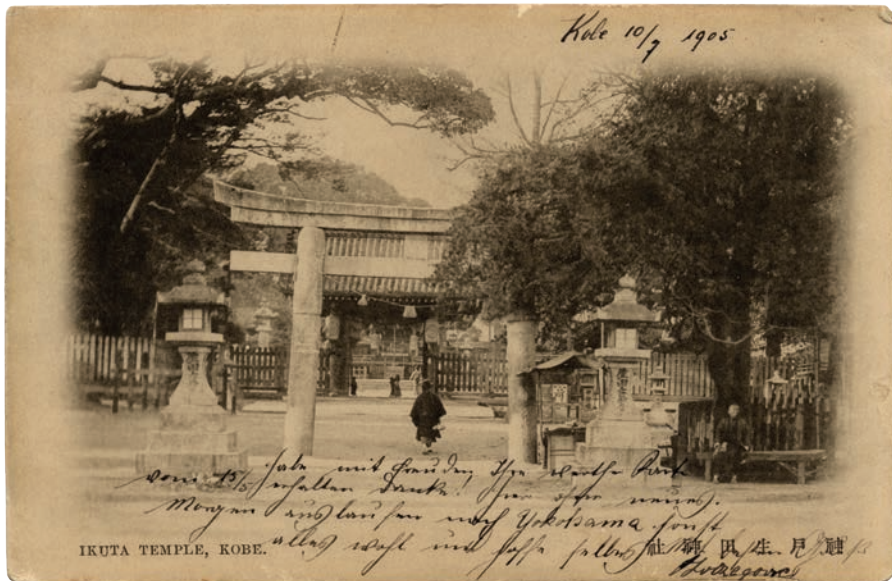 Kobe 10/7 1905
habe mit Freuden Ihre werthe Karte
vom 15/5 erhalten Danke! hier  neues.
Morgen auslaufen nach Yokohama sonst
alles wohl und hoffe selbes
IKUTA TEMPLE, KOBE.
社神田生戸神